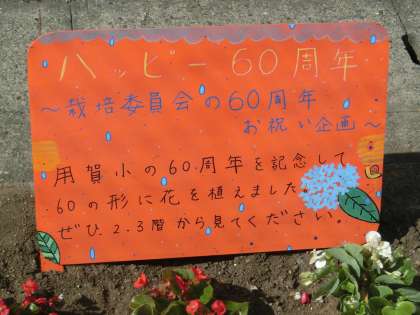 ハッピー60周年
～栽培委員会の60周年
お祝い企画～
用賀小の60周年を記念して
60の形に花を植えました。
ぜひ、2、3階から見てください。